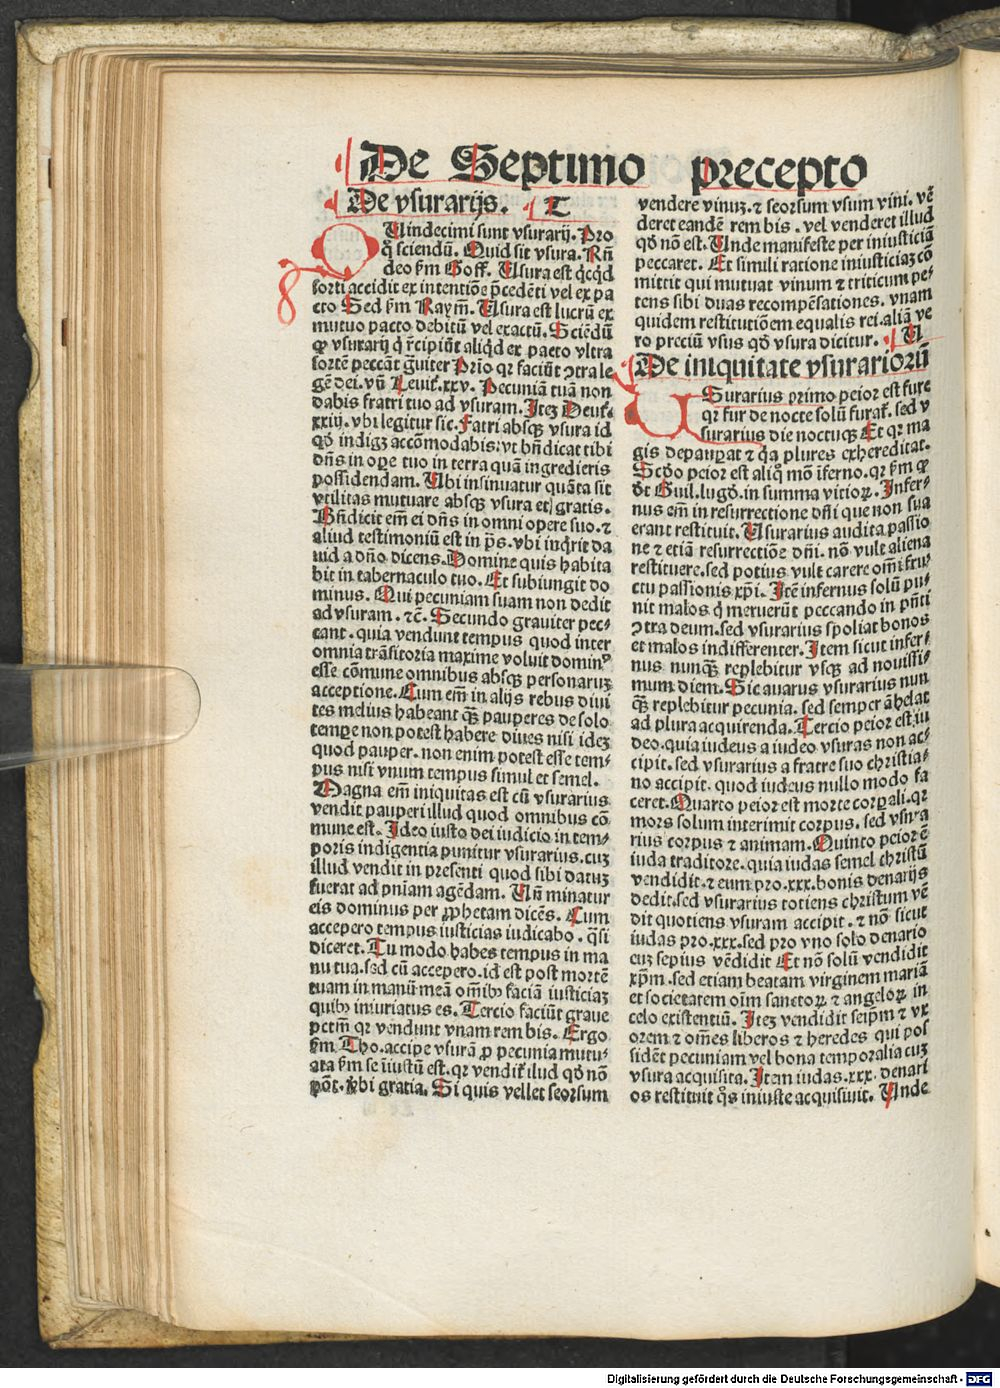 De Septimo precepto
De vsurarijs. T
QUindecimi sunt vsurarij. Pro
q̊ sciendū. Quid sit vsura. Rñ
deo ẜm Goff. Usura est q̇cqd
sorti accidit ex intentiōe p̄cedēti vel ex pa
cto Sed ẜm Raym̄. Usura est lucrū ex
mutuo pacto debitū vel exactū. Sciēdū
ꝙ vsurarij q̇ r̄cipiūt aliqd ex pacto vltra
sortē peccāt g̈uiter Prīo qꝛ faciūt ↄtra le
gē dei. vñ Leuit̄.xxv. Pecuniā tuā non
dabis fratri tuo ad vsuram. Iteꝫ Deut̄.
xxiij. vbi legitur sic. Fatri absqꝫ vsura id
qḋ indigꝫ accōmodabis: vt bn̄dicat tibi
dn̄s in oꝑe tuo in terra quā ingredieris
possidendam. Ubi insinuatur quāta sit
vtilitas mutuare absqꝫ vsura et gratis.
Bn̄dicit em̄ ei dn̄s in omni opere suo. ⁊
aliud testimoniū est in p̄s. vbi inq̇rit da
uid a dn̄o dicens. Domine quis habita
bit in tabernaculo tuo. Et subiungit do
minus. Qui pecuniam suam non dedit
ad vsuram. ⁊c̄. Secundo grauiter pec-
cant. quia vendunt tempus quod inter
omnia trāsitoria maxime voluit dominꝰ
esse cōmune omnibus absqꝫ personaruꝫ
acceptione. Cum em̄ in alijs rebus diui
tes melius habeant qꝫ̄ pauperes de solo
temꝑe non potest habere diues nisi ideꝫ
quod pauper. non enim potest esse tem-
pus nisi vnum tempus simul et semel.
Magna em̄ iniquitas est cū vsurarius
vendit pauperi illud quod omnibus cō
mune est. Ideo iusto dei iudicio in tem-
poris indigentia punitur vsurarius. cuꝫ
illud vendit in presenti quod sibi datuꝫ
fuerat ad pn̄iam agēdam. Uñ minatur
eis dominus per ꝓphetam dicēs. Cum
accepero tempus iusticias iudicabo. q̇si
diceret. Tu modo habes tempus in ma
nu tua. sed cū accepero. id est post mortē
tuam in manū meā om̄ibꝰ faciā iusticiaꝫ
quibꝰ iniuriatus es. Tercio faciūt graue
pctm̄ qꝛ vendunt vnam rem bis. Ergo
ẜm Tho. accipe vsurā ꝓ pecunia mutu-
ata ẜm se īiustū est. qꝛ vendit̄ illud qḋ nō
pōt. vbi gratia. Si quis vellet seorsum
vendere vinuꝫ. ⁊ seorsum vsum vini. vē
deret eandē rem bis. vel venderet illud
qḋ nō est. Unde manifeste per iniusticiā
peccaret. Et simili ratione iniusticiaꝫ cō
mittit qui mutuat vinum ⁊ triticum pe-
tens sibi duas recompēsationes. vnam
quidem restitutiōem equalis rei. aliā ve
ro preciū vsus qḋ vsura dicitur. U
De iniquitate vsurariorū
USurarius primo peior est fure
qꝛ fur de nocte solū furat̄. sed v
surarius die noctuqꝫ Et qꝛ ma
gis depauꝑat ⁊ q̇a plures exhereditat.
Scḋo peior est aliq̊ mō īferno. qꝛ ẜm ꝙ
ḋt Guil. lugḋ. in summa vitioꝝ. Infer-
nus em̄ in resurrectione dn̄i que non sua
erant restituit. Usurarius audita passio
ne ⁊ etiā resurrectiōe dn̄i. nō vult aliena
restituere. sed potius vult carere om̄i fru
ctu passionis xp̄i. Itē infernus solū pu-
nit malos q̇ meruerūt peccando in pn̄ti
ↄtra deum. sed vsurarius spoliat bonos
et malos indifferenter. Item sicut infer-
nus nunqꝫ̄ replebitur vsqꝫ ad nouissi-
mum diem. Sic auarus vsurarius nun
qꝫ̄ replebitur pecunia. sed semper āhelat
ad plura acquirenda. Tercio peior est iu
deo. quia iudeus a iudeo vsuras non ac-
cipit. sed vsurarius a fratre suo christia-
no accipit. quod iudeus nullo modo fa
ceret. Quarto peior est morte corꝑali. qꝛ
mors solum interimit corpus. sed vsura
rius corpus ⁊ animam. Quinto peior ē
iuda traditore. quia iudas semel christū
vendidit. ⁊ eum pro .xxx. bonis denarijs
dedit. sed vsurarius totiens christum vē
dit quotiens vsuram accipit. ⁊ nō sicut
iudas pro .xxx. sed pro vno solo denario
euꝫ sepius vēdidit Et nō solū vendidit
xp̄m. sed etiam beatam virginem mariā
et societatem oīm sanctoꝝ ⁊ angeloꝝ in
celo existentiū. Iteꝫ vendidit seip̄m ⁊ vx
orem ⁊ om̄es liberos ⁊ heredes qui pos
sidēt pecuniam vel bona temporalia cuꝫ
vsura acquisita. Item iudas .xxx. denari
os restituit q̊s iniuste acquisiuit. Unde
Digitalisierung gefördert durch die Deutsche Forschungsgemeinschaft - DFG